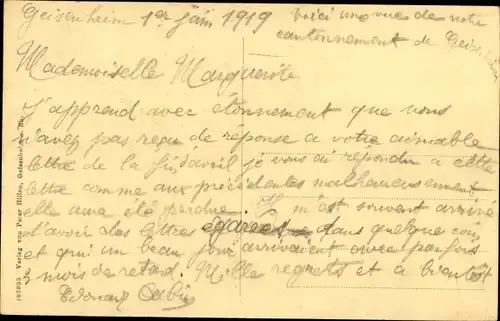 Geisenheim 1er juin 1919
Voici une vue de notre
cantonnement de
Mademoiselle Marguerite
J'apprend avec étonnement que vous
n'avez pas reçu de réponse a votre aimable
lettre de la fin d'avril je vous ai repondu a cette
lettre comme aux précédentes malheureusement
elle aura été perdue. Il m'est souvent arrivé
d'avoir des lettres égarées dans quelque coin
et qui un beau jour arrivaient avec parfois
3 mois de retard. Mille regrets et a bientôt
Edouard
Verlag von Peter Hillen, Geisenheim a. Rh.